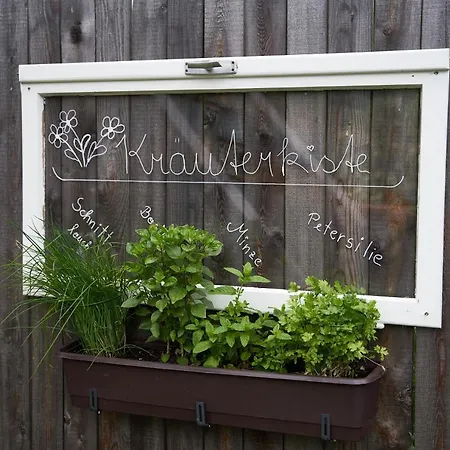 Kräuterkiste
Schnitt
lauch
Minze
Petersilie